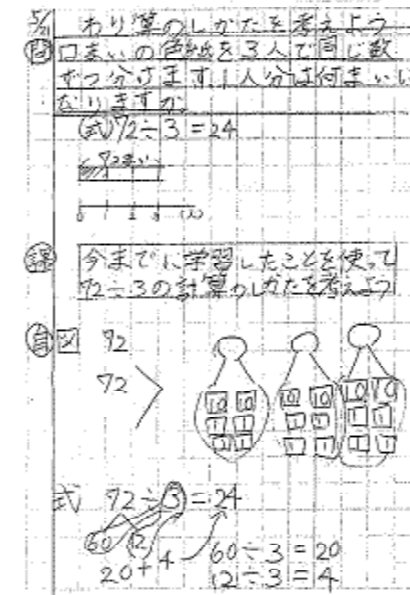 5/21 わり算のしかたを考えよう
問 口まいの色紙を3人で同じ数
ずつ分けます。1人分は何まいに
なりますか。
(式)72÷3=24
72まい
0 1 2 3 (人)
課 今までに学習したことを使って
72÷3の計算のしかたを考えよう
自 図 72
72
10 10 10 10 10 10
1 1 1 1 1 1
1 1 1 1 1 1
式 72÷3=24
60 12
20+4
60÷3=20
12÷3=4